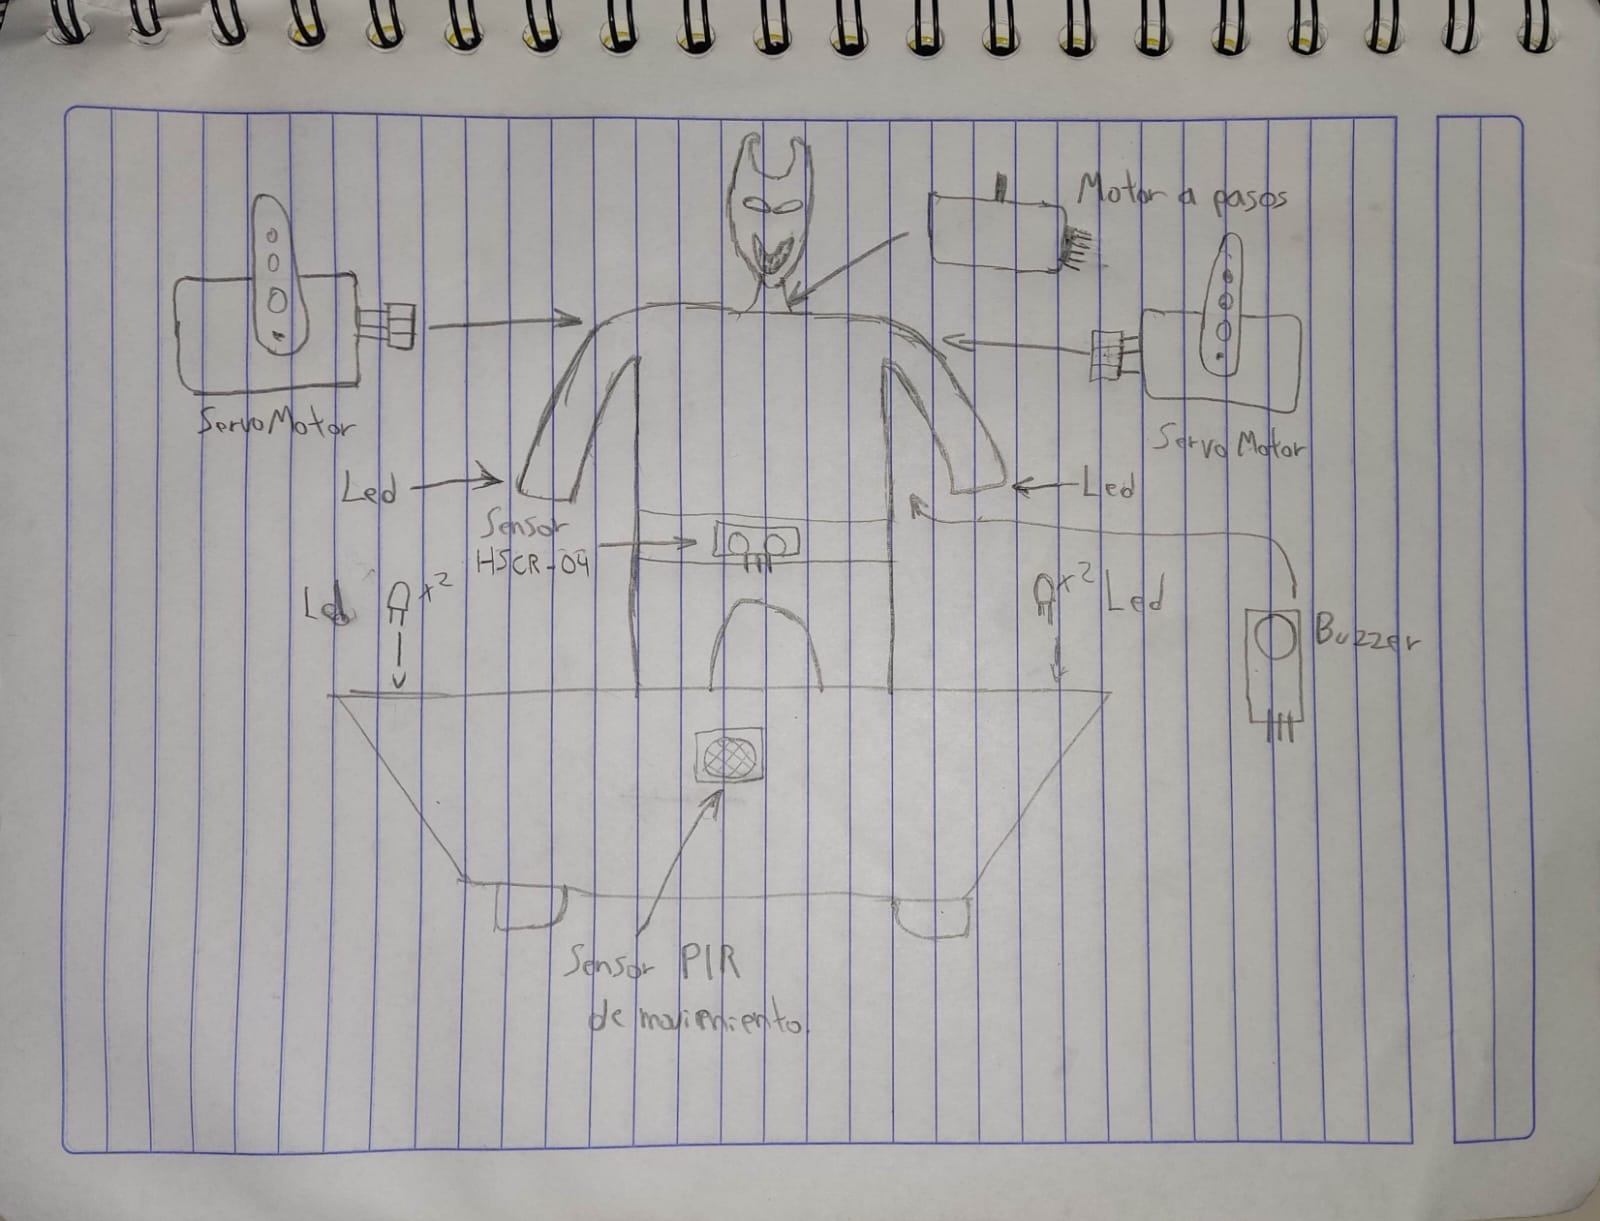 Motor a pasos
ServoMotor
Servo Motor
Led
Led
Sensor
HSCR-04
Led
x2
x2 Led
Buzzer
Sensor PIR
de movimiento.